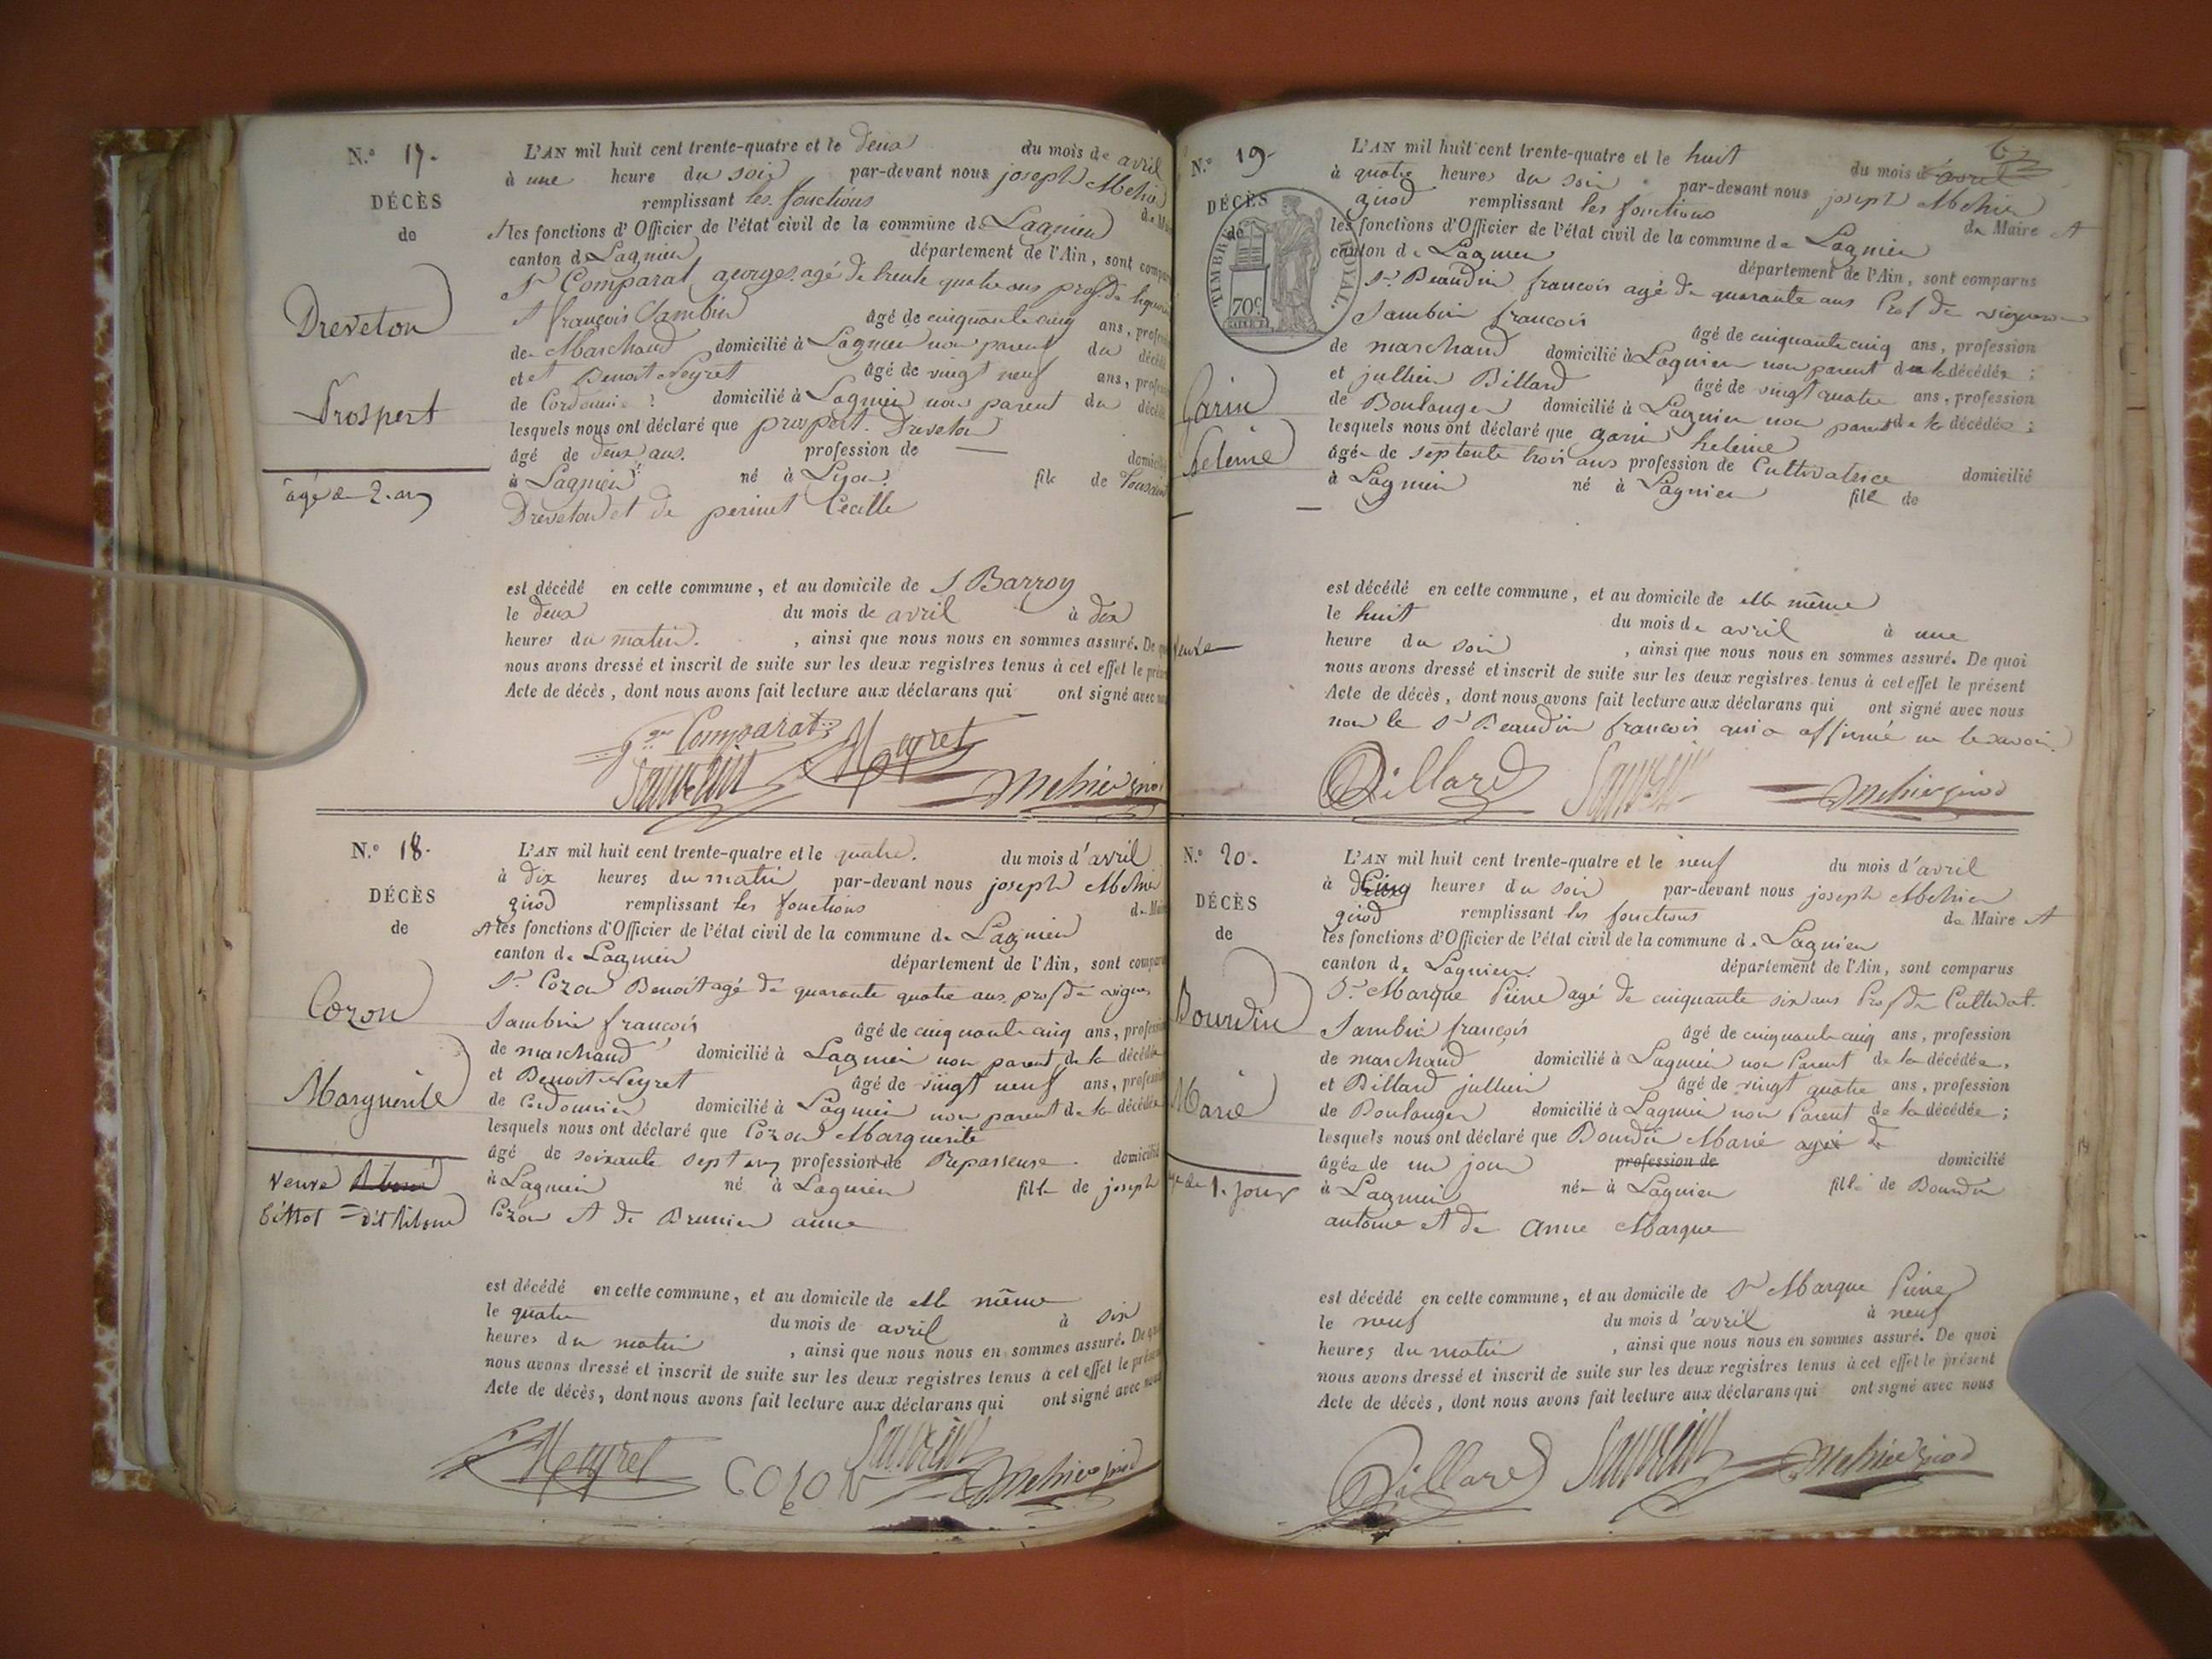 N.° 17.
DÉCÈS
de
Dreveton
Prospert
âgé de 2. ans
L'AN mil huit cent trente-quatre et le deux du mois de avril
à une heure du soir par-devant nous joseph Mehier
remplissant les fonctions de
et les fonctions d'Officier de l'état civil de la commune de Lagnieu
canton de Lagnieu département de l'Ain, sont
Sr Comparat georges agé de trente quatre ans prof. de
françois âgé de cinquante cinq ans,
de Marchand domicilié à Lagnieu non parent du
et Benoit Neyret âgé de vingt neuf ans,
de Cordonnie domicilié à Lagnieu non parent du
lesquels nous ont déclaré que prospert Dreveton
âgé de deux ans. profession de —
à Lagnieu né à Lyon fils de
Dreveton et de perinet Cecille
est décédé en cette commune, et au domicile de S. Barroy
le deux du mois de avril à dix
heures du matin. , ainsi que nous nous en sommes assuré. De
nous avons dressé et inscrit de suite sur les deux registres tenus à cet effet le
Acte de décès, dont nous avons fait lecture aux déclarans qui ont signé avec
Comparat
Sambin Neyret
Mehier girod
N.° 18.
DÉCÈS
de
Cozon
Marguerite
veuve
L'AN mil huit cent trente-quatre et le quatre. du mois d'avril
à dix heures du matin par-devant nous joseph Mehier
girod remplissant les fonctions de
et les fonctions d'Officier de l'état civil de la commune de Lagnieu
canton de Lagnieu département de l'Ain, sont
Sr. Cozon Benoit agé de quarante quatre ans prof de
Sambin françois âgé de cinquante cinq ans,
de marchand domicilié à Lagnieu non parent de la
et Benoit Neyret âgé de vingt neuf ans,
de Cordonnier domicilié à Lagnieu non parent de la
lesquels nous ont déclaré que Cozon Marguerite
âgé de soixante sept ans profession de Repasseuse
à Lagnieu né à Lagnieu fille de joseph
Cozon et de Brunier anne
est décédé en cette commune, et au domicile de elle même
le quatre du mois de avril à six
heures du matin , ainsi que nous nous en sommes assuré. De
nous avons dressé et inscrit de suite sur les deux registres tenus à cet effet le
Acte de décès, dont nous avons fait lecture aux déclarans qui ont signé avec
Neyret COZON Sambin Mehier girod
N.° 19.
DÉCÈS
de
TIMBRE ROYAL.
70c
Garin
helenie
veuve
L'AN mil huit cent trente-quatre et le huit du mois d'avril
à quatre heures du soir par-devant nous joseph Mehier
girod remplissant les fonctions de Maire et
les fonctions d'Officier de l'état civil de la commune de Lagnieu
canton de Lagnieu département de l'Ain, sont comparus
Sr. Beaudin francois agé de quarante ans Prof de vigneron
Sambin francois âgé de cinquante cinq ans, profession
de marchand domicilié à Lagnieu non parent de la décédée ;
et jullien Billard âgé de vingt quatre ans, profession
de Boulanger domicilié à Lagnieu non parent de la décédée ;
lesquels nous ont déclaré que garin helenie
âgée de septente trois ans profession de Cultivatrice domicilié
à Lagnieu né à Lagnieu fille de
est décédé en cette commune, et au domicile de elle même
le huit du mois de avril à une
heure du soir , ainsi que nous nous en sommes assuré. De quoi
nous avons dressé et inscrit de suite sur les deux registres tenus à cet effet le présent
Acte de décès, dont nous avons fait lecture aux déclarans qui ont signé avec nous
non le Sr Beaudin francois qui a affirmé ne le savoir.
Billard Sambin Mehier girod
N.° 20.
DÉCÈS
de
Bourdin
Marie
1. jour
L'AN mil huit cent trente-quatre et le neuf du mois d'avril
à Cinq heures du soir par-devant nous joseph Mehier
girod remplissant les fonctions de Maire et
les fonctions d'Officier de l'état civil de la commune de Lagnieu
canton de Lagnieu. département de l'Ain, sont comparus
Sr. Marque Pierre agé de cinquante six ans Prof de Cultivat.
Sambin françois âgé de cinquante cinq ans, profession
de marchand domicilié à Lagnieu non Parent de la décédée,
et Billard jullien âgé de vingt quatre ans, profession
de Boulanger domicilié à Lagnieu non Parent de la décédée ;
lesquels nous ont déclaré que Bourdin Marie agée de
âgée de un jour profession de domicilié
à Lagnieu née à Lagnieu fille de Bourdin
antoine et de Anne Marque
est décédé en cette commune, et au domicile de Sr Marque Pierre
le neuf du mois d'avril à neuf
heures du matin , ainsi que nous nous en sommes assuré. De quoi
nous avons dressé et inscrit de suite sur les deux registres tenus à cet effet le présent
Acte de décès, dont nous avons fait lecture aux déclarans qui ont signé avec nous
Billard Sambin Mehier girod